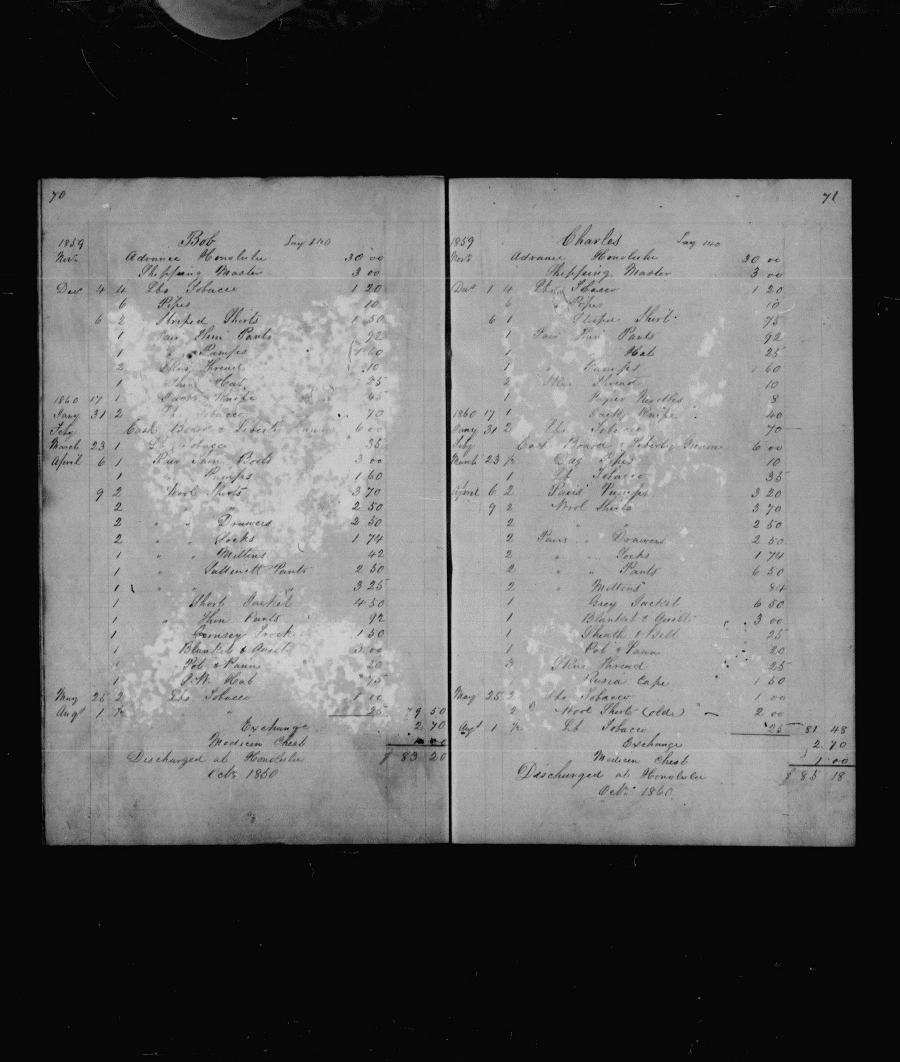 70
Bob Lay 140
1859
Novr. Advance Honolulu 30 00
Shipping Master 3 00
Decr 4 4 Lbs Tobacco 1 20
6 Pipes 10
6 2 Striped Shirts 1 50
1 Pair Thin Pants 92
1 " Pumps 1 60
2 Skns Thread 10
1 Hat 25
1860 17 1 Knife 45
Jany 31 2 Lbs Tobacco 70
Feby Cash Board & Liberty 6 00
March 23 1 Lb Tobacco 35
April 6 1 Pair Thin Boots 3 00
1 " Pumps 1 60
9 2 Wool Shirts 3 70
2 " " 2 50
2 " " Drawers 2 50
2 " " Socks 1 74
1 " " Mittens 42
1 " Sattinett Pants 2 50
1 " " 3 25
1 Short Jacket 4 50
1 " Thin Pants 92
1 Guernsey Frock 1 50
1 Blanket & Quilt 3 00
1 Pot & Pann 20
1 S.W. Hat 75
May 25 2 Lbs Tobacco 1 00
Augt 1 ½ " " 25 79 50
Exchange 2 70
Medicin Chest 1 00
Discharged at Honolulu $ 83 20
Octr 1860
71
Charles Lay 140
1859
Novr. Advance Honolulu 30 00
Shipping Master 3 00
Decr 1 4 Lbs Tobacco 1 20
6 Pipes 10
6 1 Striped Shirt 75
1 Pair Thin Pants 92
1 Hat 25
1 " Pumps 1 60
2 Skns Thread 10
1 Paper Needles 8
1860 17 1 Knife 40
Jany 31 2 Lbs Tobacco 70
Feby Cash Board & Liberty 6 00
March 23 ½ Doz Pipes 10
1 Lb Tobacco 35
April 6 2 Pairs Pumps 3 20
9 2 Wool Shirts 3 70
2 " " 2 50
2 Pairs " Drawers 2 50
2 " " Socks 1 74
2 " " Pants 6 50
2 " " Mittens 84
1 Grey Jacket 6 50
1 Blanket & Quilt 3 00
1 Sheath & Belt 25
1 Pot & Pann 20
3 Skns Thread 25
1 Rusia Cape 1 50
May 25 2 Lbs Tobacco 1 00
2 Wool Shirts (old) 2 00
Augt 1 ½ Lb Tobacco 25 81 48
Exchange 2 70
Medicin Chest 1 00
Discharged at Honolulu $ 85 18
Octr. 1860